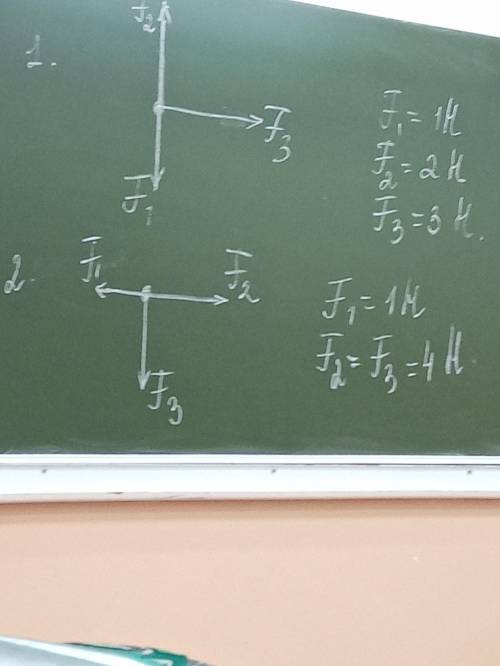 1.
F₂
F₃
F₁
F₁ = 1Н
F₂ = 2Н
F₃ = 3Н.
2.
F₁
F₂
F₃
F₁ = 1Н
F₂ = F₃ = 4Н.